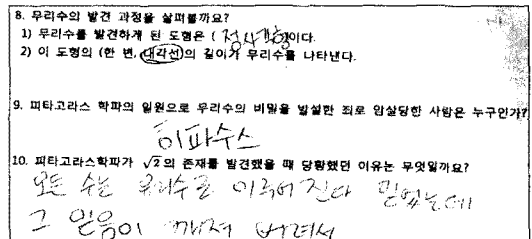 8. 무리수의 발견 과정을 살펴볼까요?
1) 무리수를 발견하게 된 도형은 ( 정사각형이다.
2) 이 도형의 (한 변, 대각선)의 길이가 무리수를 나타낸다.
9. 피타고라스 학파의 일원으로 무리수의 비밀을 발설한 죄로 암살당한 사람은 누구인가?
히파수스
10. 피타고라스학파가 √2의 존재를 발견했을 때 당황했던 이유는 무엇일까요?
모든 수는 유리수로 이루어 진다 믿었는데
그 믿음이 깨져 버려서